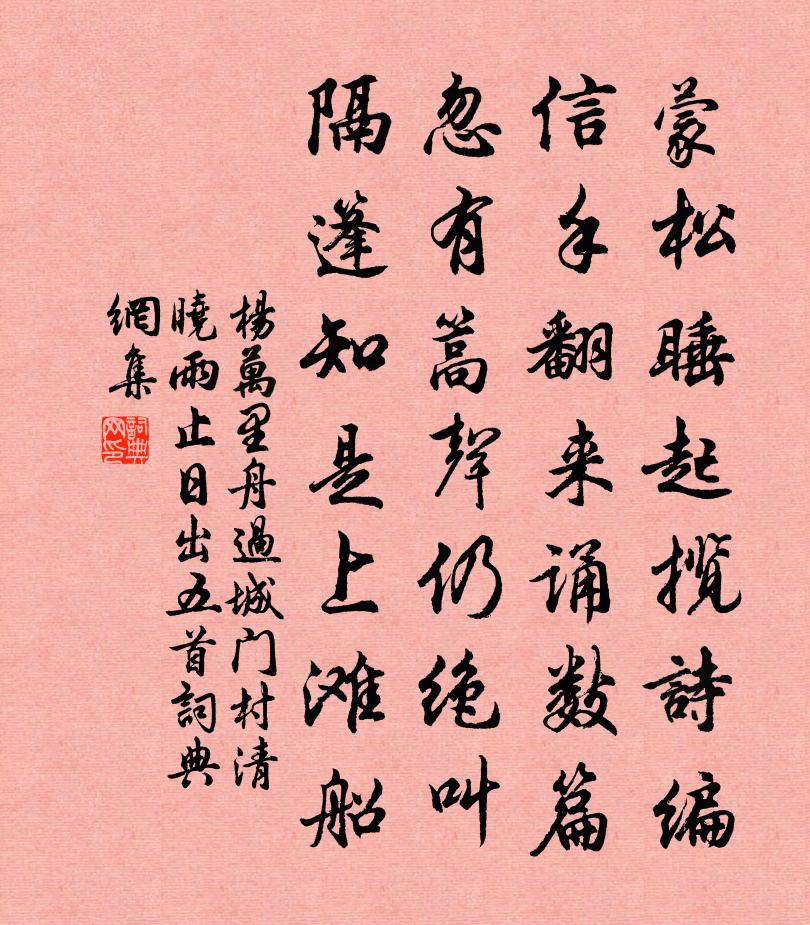 蒙松睡起揽詩编
信手翻来诵数篇
忽有篙聲仍绝叫
隔篷知是上滩船
楊萬里舟過城门村清
曉雨止日出五首詞典
網集
詞典网印